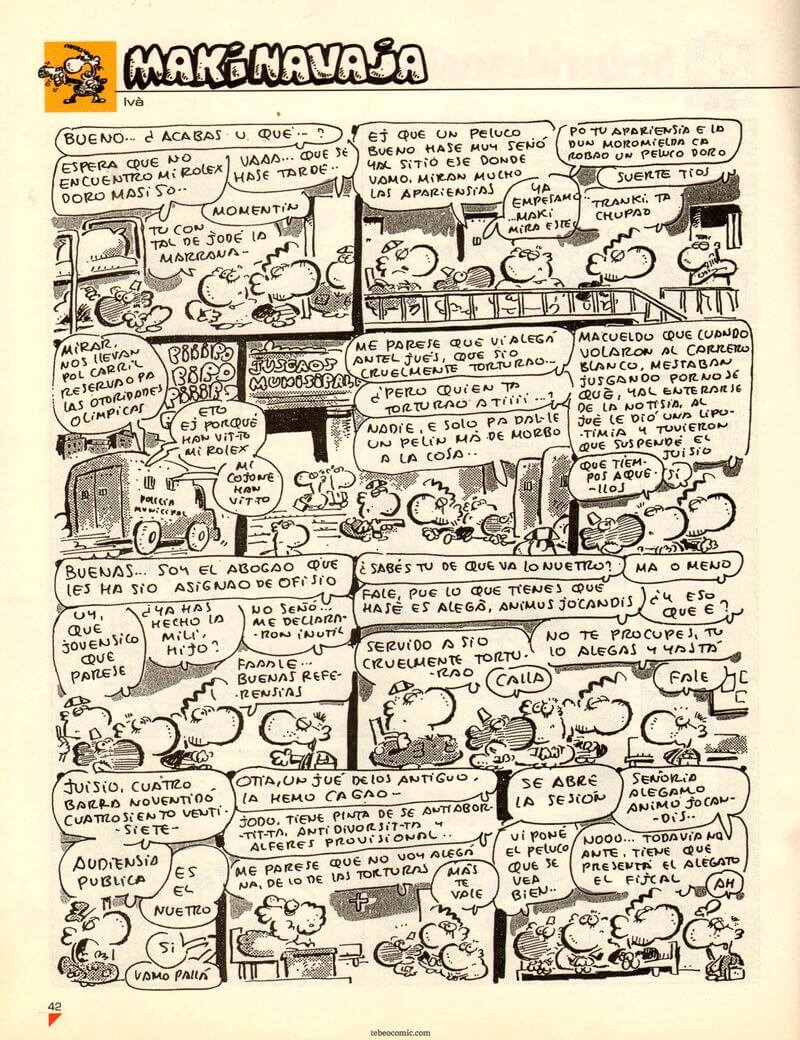 MAKINAVAJA
Ivà
BUENO... ¿ ACABAS U QUÉ... ?
ESPERA QUE NO
ENCUENTRO MI ROLEX
DORO MASISO..
VAAA... QUE SE
HASE TARDE..
MOMENTIN
TU CON
TAL DE JODÉ LA
MARRANA..
EJ QUE UN PELUCO
BUENO HASE MUY SEÑÓ
YAL SITIO ESE DONDE
VAMO, MIRAN MUCHO
LAS APARIENSIAS
PO TU APARIENSIA E LA
DUN MOROMIELDA CA
ROBAO UN PELUCO DORO
YA
EMPESAMO
...MAKI
MIRA ESTE!
SUERTE TIOS
TRANKI, TA
CHUPAO
MIRAR,
NOS LLEVAN
POL CARRIL
RESERVAO PA
LAS OTORIDADES
OLIMPICAS
PIIIIPO
PIPO
PIIIIPO
ETO
EJ PORQUÉ
HAN VITTO
MI ROLEX
MI
COJONE
HAN
VITTO
POLICIA
MUNICIPAL
JUSGAOS
MUNISIPALE
ME PARESE QUE VI ALEGÁ
ANTEL JUES, QUE SIO
CRUELMENTE TORTURAO...
¿PERO QUIEN TA
TORTURAO A TIIII...?
NADIE, E SOLO PA DAL-LE
UN PELIN MÁ DE MORBO
A LA COSA..
MACUELDO QUE CUANDO
VOLARON AL CARRERO
BLANCO, MESTABAN
JUSGANDO POR NO SÉ
QUÉ, YAL ENTERARSE
DE LA NOTISIA, AL
JUÉ LE DIÓ UNA LIPO-
TIMIA Y TUVIERON
QUE SUSPENDÉ EL
JUISIO
QUE TIEM-
POS AQUE-
LLOS
SI
BUENAS... SOY EL ABOGAO QUE
LES HA SIO ASIGNAO DE OFISIO
UY,
QUE
JOVENSICO
QUE
PARESE
¿YA HAS
HECHO LA
MILI,
HIJO?
NO SEÑÓ...
ME DECLARA-
RON INUTIL
FAAALE...
BUENAS REFE-
RENSIAS
¿SABÉS TU DE QUE VA LO NUETRO?
MA O MENO
FALE, PUE LO QUE TIENES QUE
HASÉ ES ALEGÁ, ANIMUS JOCANDIS
¿Y ESO
QUE E?
SERVIDO A SIO
CRUELMENTE TORTU-
RAO
CALLA
NO TE PROCUPES, TU
LO ALEGAS Y YASTÁ
FALE
JUISIO, CUATRO
BARRA NOVENTIDO,
CUATROSIENTO VENTI-
SIETE-
AUDIENSIA
PUBLICA
ES
EL
NUETRO
SI
VAMO PALLÁ
OTIA, UN JUÉ DE LOS ANTIGUO,
LA HEMO CAGAO-
JODO, TIENE PINTA DE SE ANTIABOR-
TIT-TA, ANTI DIVORSIT-TA Y
ALFERES PROVISIONAL...
ME PARESE QUE NO VOY ALEGÁ
NA, DE LO DE LAS TORTURAS
MÁS
TE
VALE
SE ABRE
LA SESIÓN
SEÑORIA
ALEGAMO
ANIMO JOCAN-
DIS..
VI PONÉ
EL PELUCO
QUE SE
VEA
BIEN..
NOOO... TODAVIA NO
ANTE, TIENE QUE
PRESENTÁ EL ALEGATO
EL FIJCAL
AH
42
tebeocomic.com